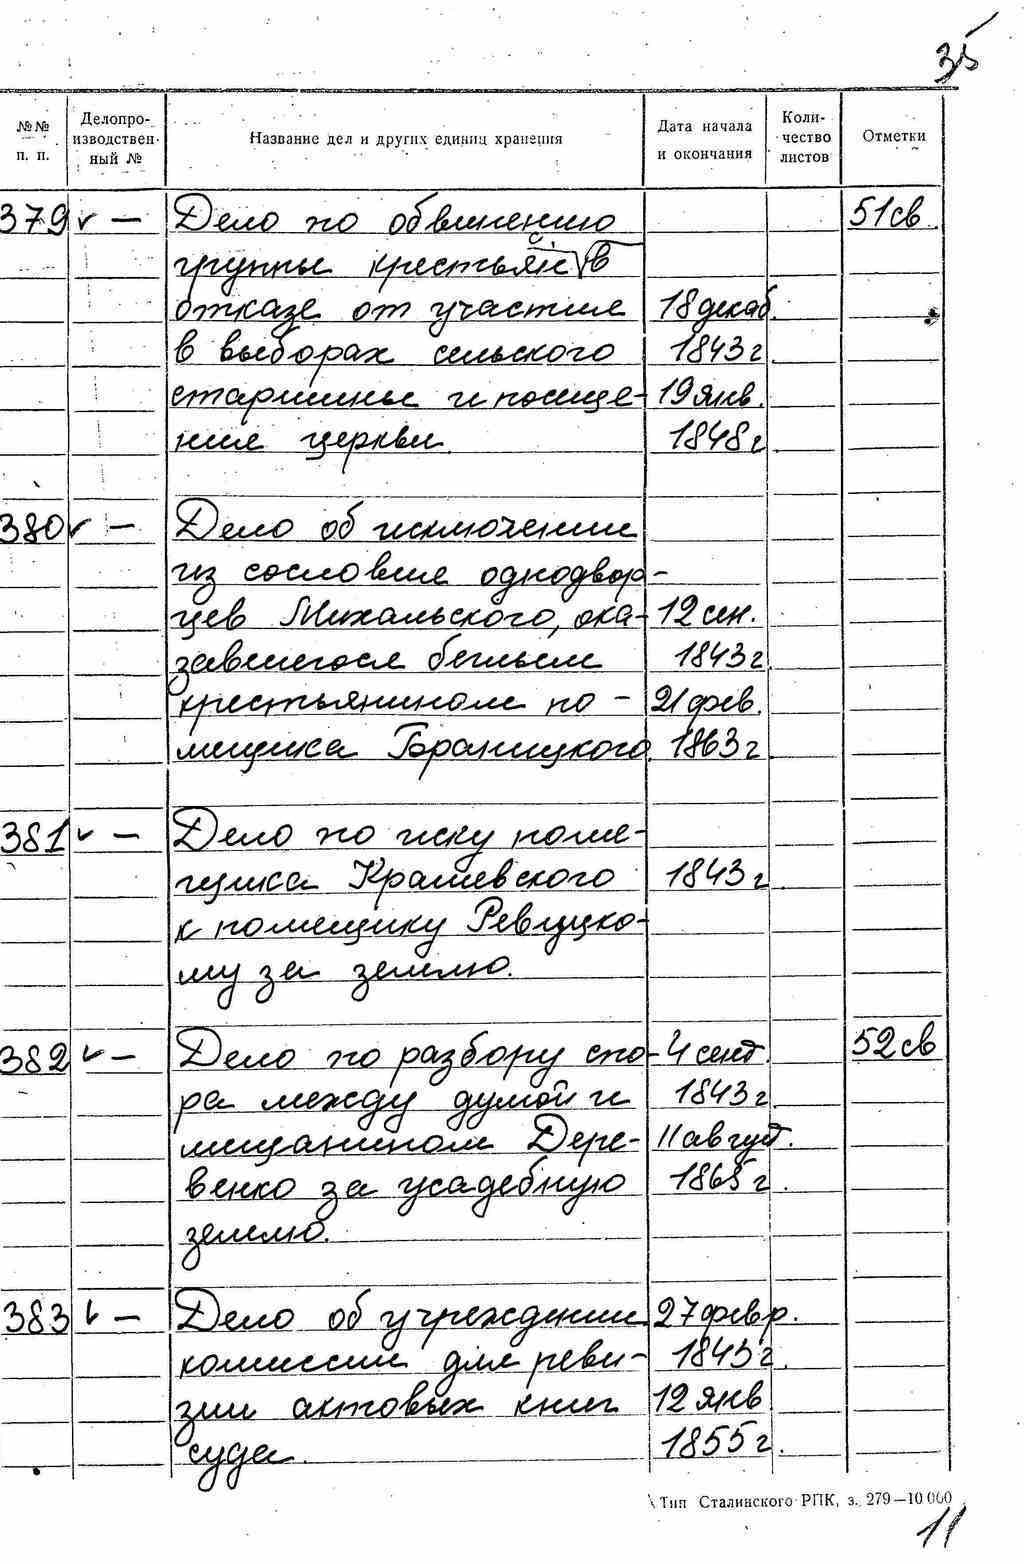 35
№№ п. п. Делопроизводственный № Название дел и других единиц хранения Дата начала и окончания Количество листов Отметки
379 ✓ — Дело по обвинению 51 св.
группы крестьян в
отказе от участия 18 декаб.
в выборах сельского 1843 г.
старшины и посеще- 19 янв.
ния церкви. 1848 г
380 ✓ — Дело об исключении
из сословия однодвор-
цев Михальского, ока- 12 сен.
завшегося беглым 1843 г.
крестьянином по- 21 фев.
мещика Бораницкого. 1863 г.
381 ✓ — Дело по иску поме-
щика Крашевского 1843 г.
к помещику Ревуцко-
му за землю.
382 ✓ — Дело по разбору спо- 4 сент. 52 св
ра между думой и 1843 г.
мещанином Дере- 11 август.
венко за усадебную 1865 г.
землю.
383 ✓ — Дело об учреждении 27 февр.
комиссии для реви- 1843 г.
зии актовых книг 12 янв
суда. 1855 г.
Тип Сталинского РПК, з. 279—10 000
11